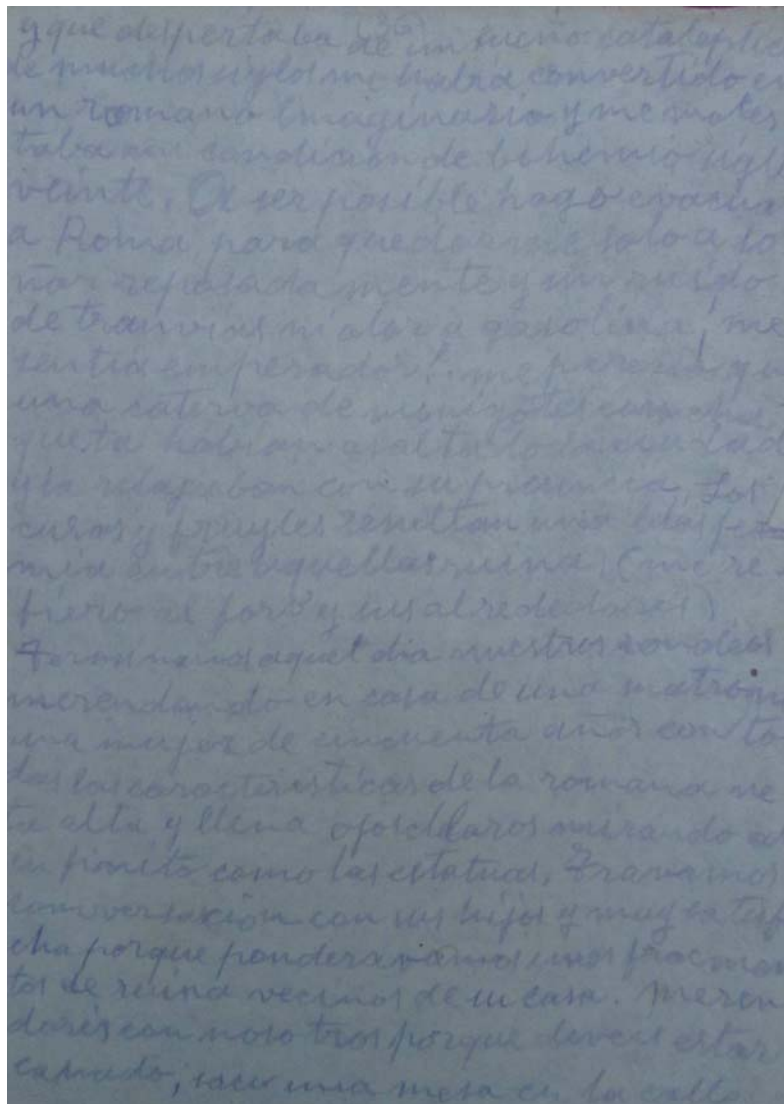 y que despertaba de un sueño cataleptic
de muchos siglos me habia convertido e
un romano imaginario y me moles
taba mi condicion de bohemio sigl
veinte. A ser posible hago evacua
a Roma para quedarme solo a so
ñar reposadamente y sin ruido
de tranvias ni olor a gasolina, me
sentia emperador!, me parecia qu
una caterva de
queta habian asaltado la ciudad
y la con su presencia, Los
curas y frayles resultan una
mia entre aquellas ruinas (me re
fiero al foro y sus alrededores)
Terminamos aquel dia nuestros
merendando en casa de una matron
una mujer de cincuenta años con to
das las caracteristicas de la romana ne
ta alta y llena ojos claros mirando al
infinito como las estatuas, Travamos
conversación con sus hijos y
cha porque ponderavamos unos fracmen
tos de ruina vecinos de su casa. Meren
dareis con nosotros porque deveis estar
cansado, una mesa en la calle